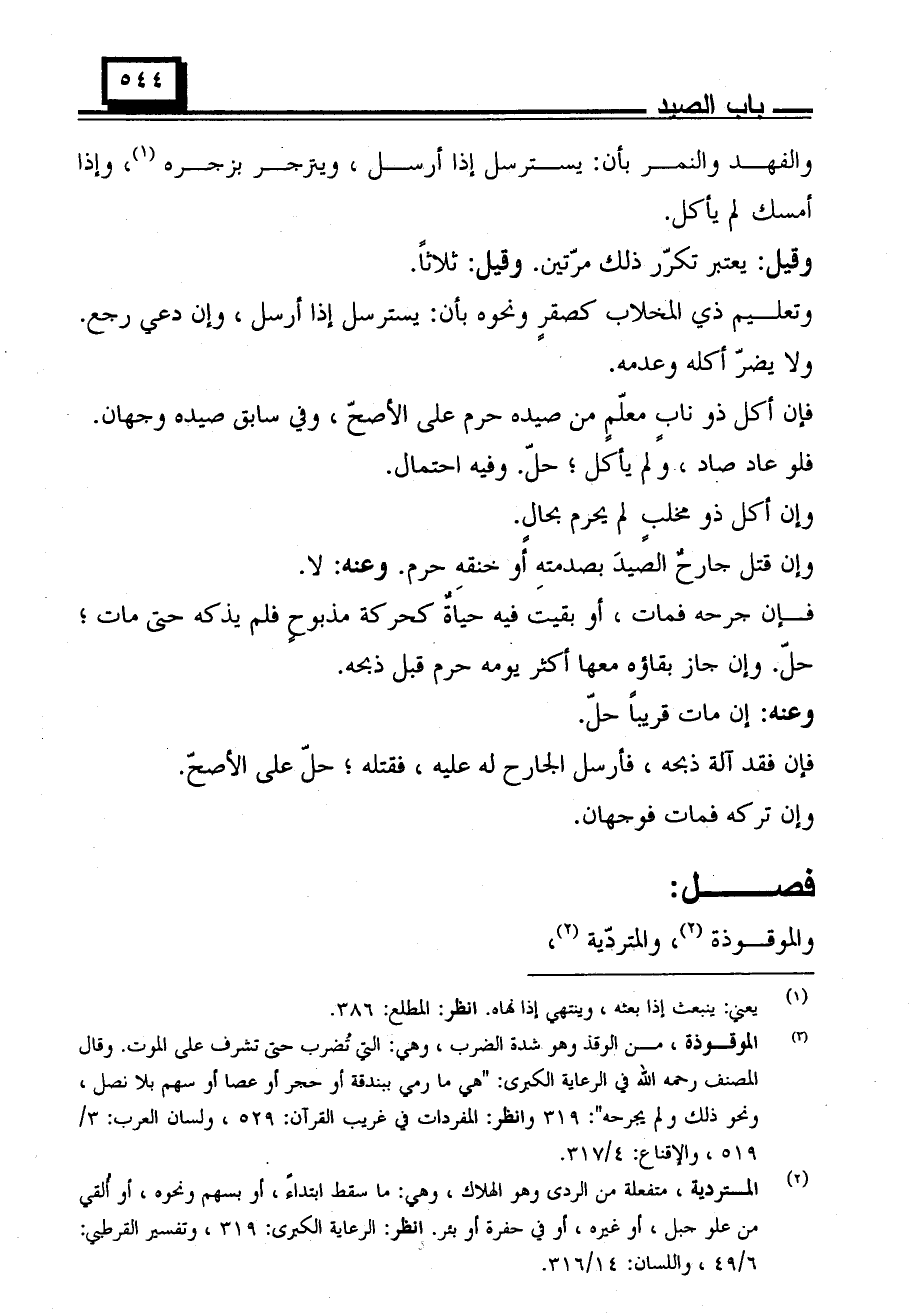 ٥٤٤
باب الصيد
والفهد والنمر بأن: يسترسل إذا أرسل ، وينزجر بزجره (١)، وإذا
أمسك لم يأكل.
وقيل: يعتبر تكرّر ذلك مرّتين. وقيل: ثلاثاً.
وتعليم ذي المخلاب كصقرٍ ونحوه بأن: يسترسل إذا أرسل ، وإن دعي رجع.
ولا يضرّ أكله وعدمه.
فإن أكل ذو نابٍ معلّمٍ من صيده حرم على الأصحّ ، وفي سابق صيده وجهان.
فلو عاد صاد ، ولم يأكل ؛ حلّ. وفيه احتمال.
وإن أكل ذو مخلبٍ لم يحرم بحالٍ.
وإن قتل جارحٌ الصيدَ بصدمتهِ أو خنقهِ حرم. وعنه: لا.
فإن جرحه فمات ، أو بقيت فيه حياةٌ كحركة مذبوحٍ فلم يذكه حتى مات ؛
حلّ. وإن جاز بقاؤه معها أكثر يومه حرم قبل ذبحه.
وعنه: إن مات قريباً حلّ.
فإن فقد آلة ذبحه ، فأرسل الجارح له عليه ، فقتله ؛ حلّ على الأصحّ.
وإن تركه فمات فوجهان.
فصل:
والموقوذة (٢)، والمتردّية (٢)،
(١) يعني: ينبعث إذا بعثه ، وينتهي إذا نهاه. انظر: المطلع: ٣٨٦.
(٣) الموقوذة ، من الوقذ وهو شدة الضرب ، وهي: التي تُضرب حتى تشرف على الموت. وقال
المصنف رحمه الله في الرعاية الكبرى: "هي ما رمي ببندقة أو حجر أو عصا أو سهم بلا نصل ،
ونحو ذلك ولم يجرحه": ٣١٩ وانظر: المفردات في غريب القرآن: ٥٢٩ ، ولسان العرب: ٣/
٥١٩ ، والإقناع: ٣١٧/٤.
(٢) المتردية ، متفعلة من الردى وهو الهلاك ، وهي: ما سقط ابتداءً ، أو بسهم ونحوه ، أو أُلقي
من علو جبل ، أو غيره ، أو في حفرة أو بئر. انظر: الرعاية الكبرى: ٣١٩ ، وتفسير القرطبي:
٤٩/٦ ، واللسان: ٣١٦/١٤.